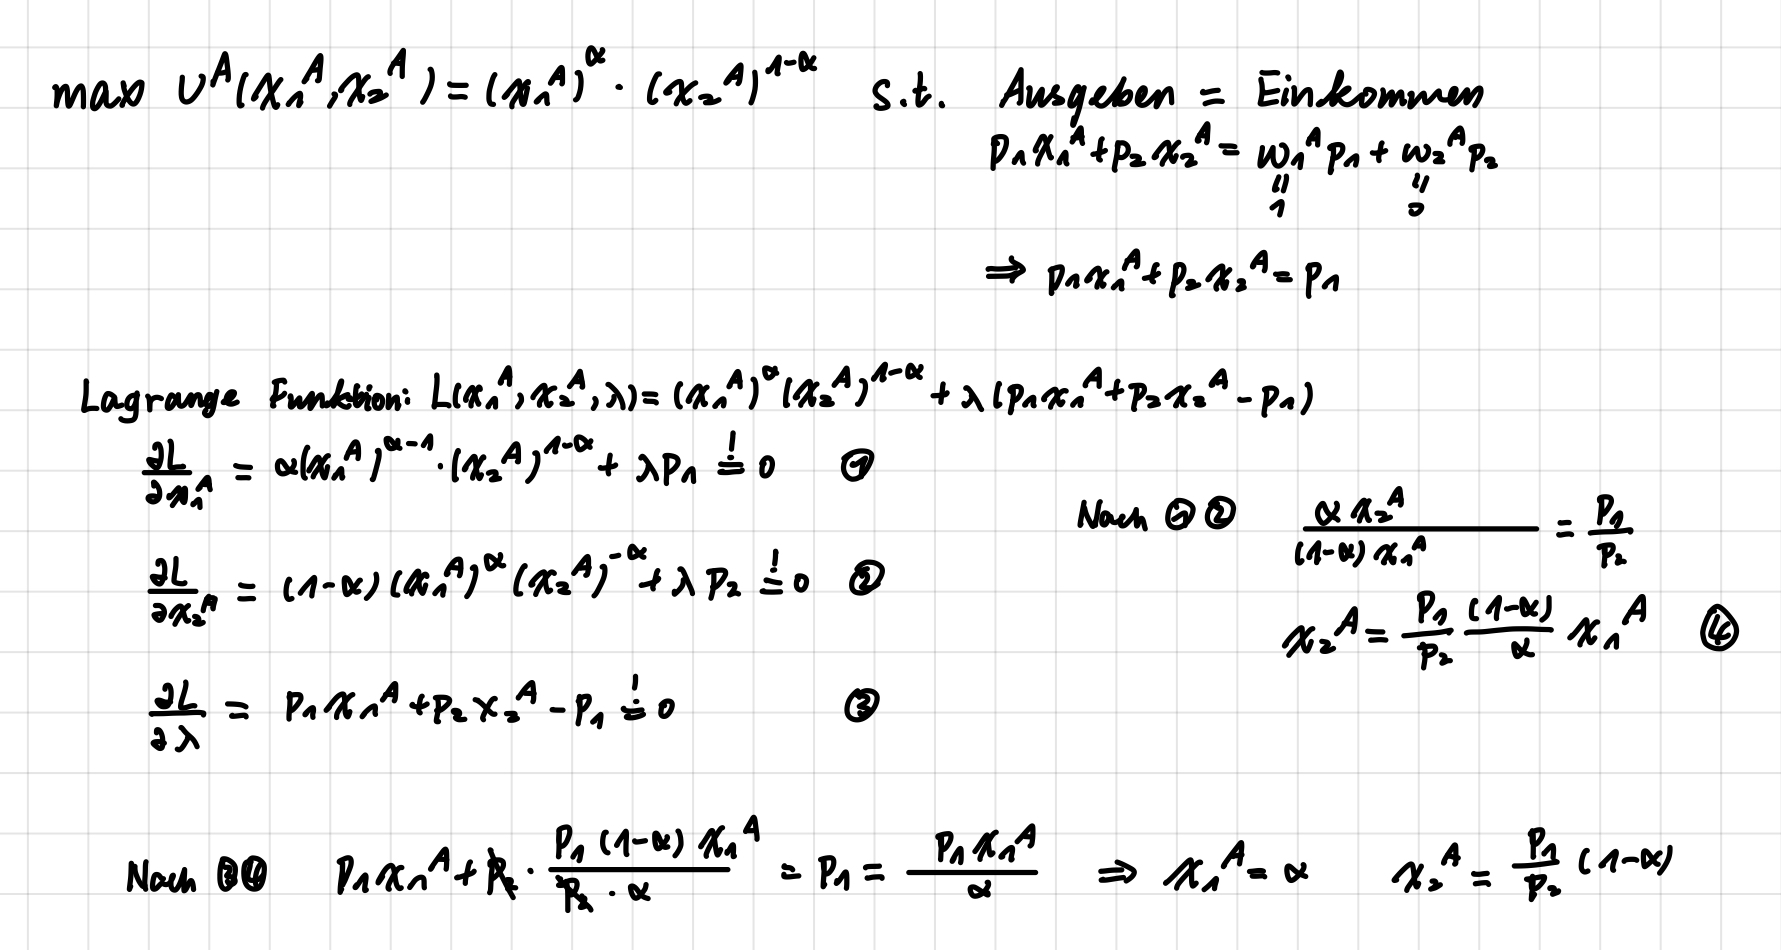 max U^A(x₁^A, x₂^A) = (x₁^A)^α · (x₂^A)^{1-α}   s.t.   Ausgeben = Einkommen
p₁x₁^A + p₂x₂^A = w₁^A p₁ + w₂^A p₂
"   "
1   0
⇒ p₁x₁^A + p₂x₂^A = p₁
Lagrange Funktion: L(x₁^A, x₂^A, λ) = (x₁^A)^α (x₂^A)^{1-α} + λ(p₁x₁^A + p₂x₂^A - p₁)
∂L/∂x₁^A = α(x₁^A)^{α-1} · (x₂^A)^{1-α} + λp₁ =! 0   ①
Nach ① ②   αx₂^A / (1-α)x₁^A = p₁/p₂
∂L/∂x₂^A = (1-α)(x₁^A)^α (x₂^A)^{-α} + λp₂ =! 0   ②
x₂^A = p₁/p₂ (1-α)/α x₁^A   ④
∂L/∂λ = p₁x₁^A + p₂x₂^A - p₁ =! 0   ③
Nach ③④   p₁x₁^A + p₂ · p₁(1-α)x₁^A / p₂ · α = p₁ = p₁x₁^A / α   ⇒ x₁^A = α   x₂^A = p₁/p₂ (1-α)